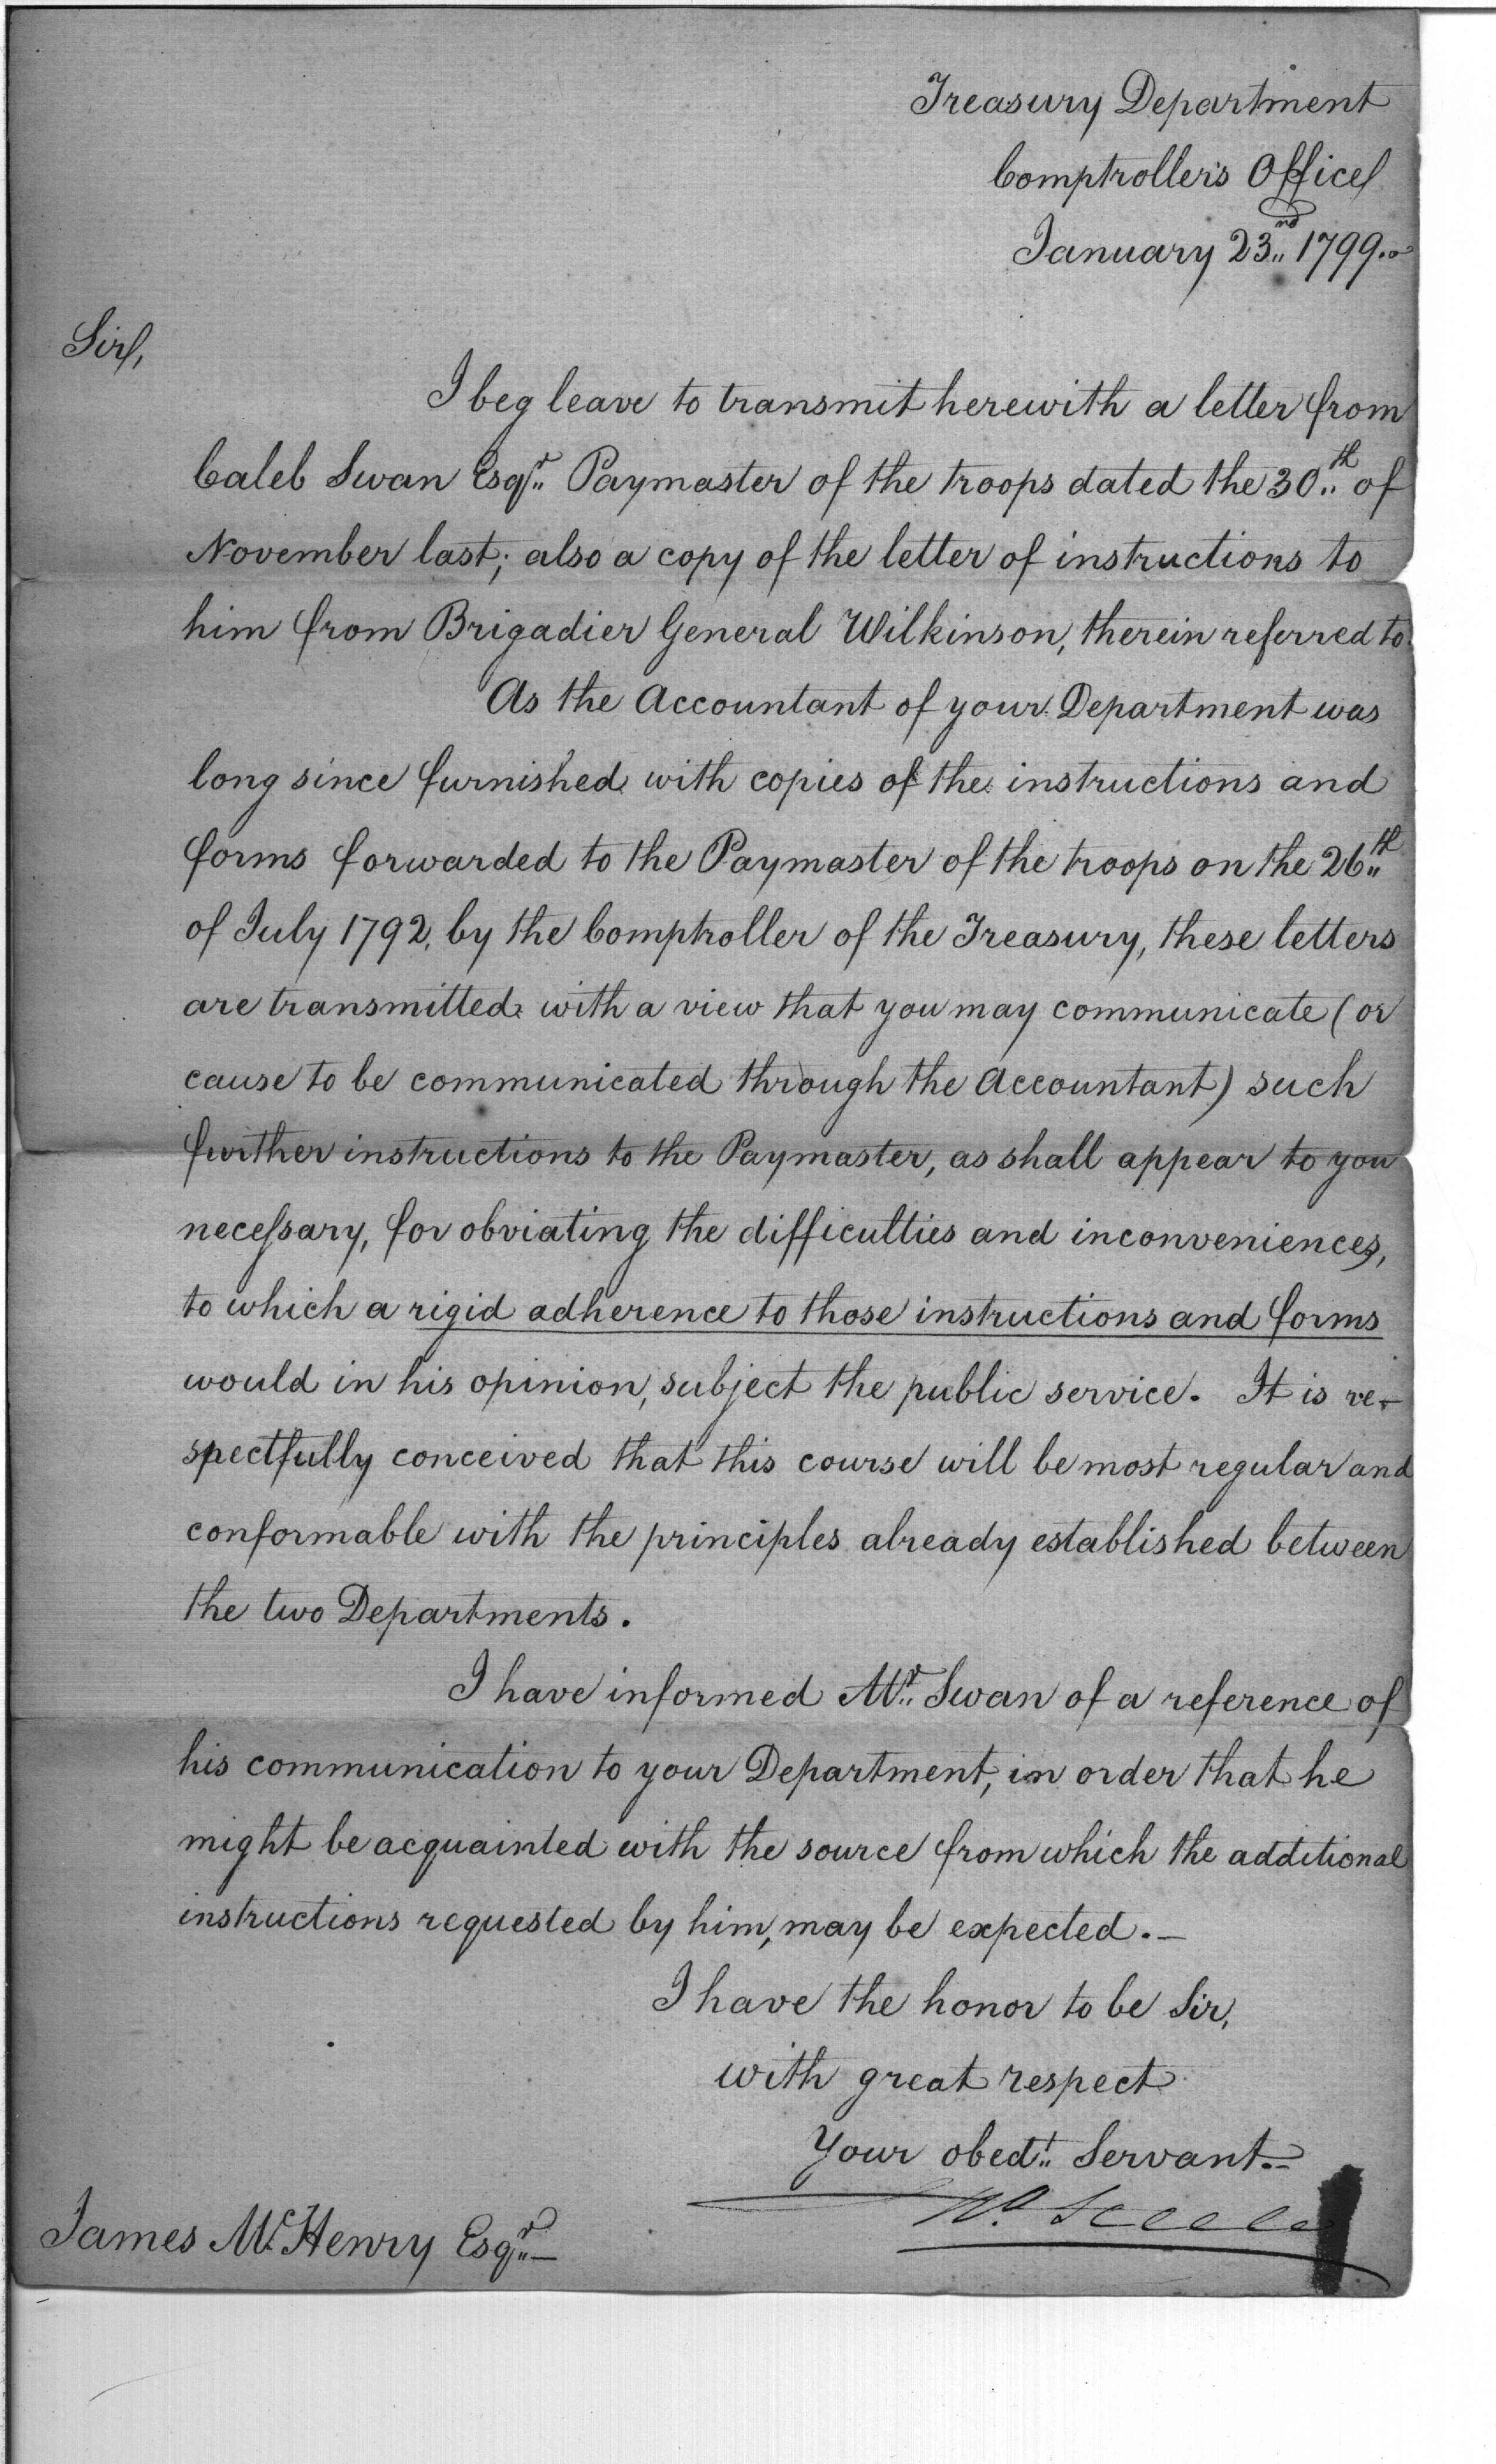 Treasury Department
Comptroller's Office
January 23nd 1799.
Sir,
I beg leave to transmit herewith a letter from
Caleb Swan Esqr. Paymaster of the troops dated the 30th of
November last; also a copy of the letter of instructions to
him from Brigadier General Wilkinson, therein referred to.
As the Accountant of your Department was
long since furnished with copies of the instructions and
forms forwarded to the Paymaster of the troops on the 26th
of July 1792, by the Comptroller of the Treasury, these letters
are transmitted with a view that you may communicate (or
cause to be communicated through the Accountant) such
further instructions to the Paymaster, as shall appear to you
neceſsary, for obviating the difficulties and inconveniences,
to which a rigid adherence to those instructions and forms
would in his opinion, subject the public service. It is re-
spectfully conceived that this course will be most regular and
conformable with the principles already established between
the two Departments.
I have informed Mr. Swan of a reference of
his communication to your Department, in order that he
might be acquainted with the source from which the additional
instructions requested by him, may be expected.—
I have the honor to be Sir,
with great respect
Your obedt. Servant.—
Jno. Steele
James McHenry Esqr.—